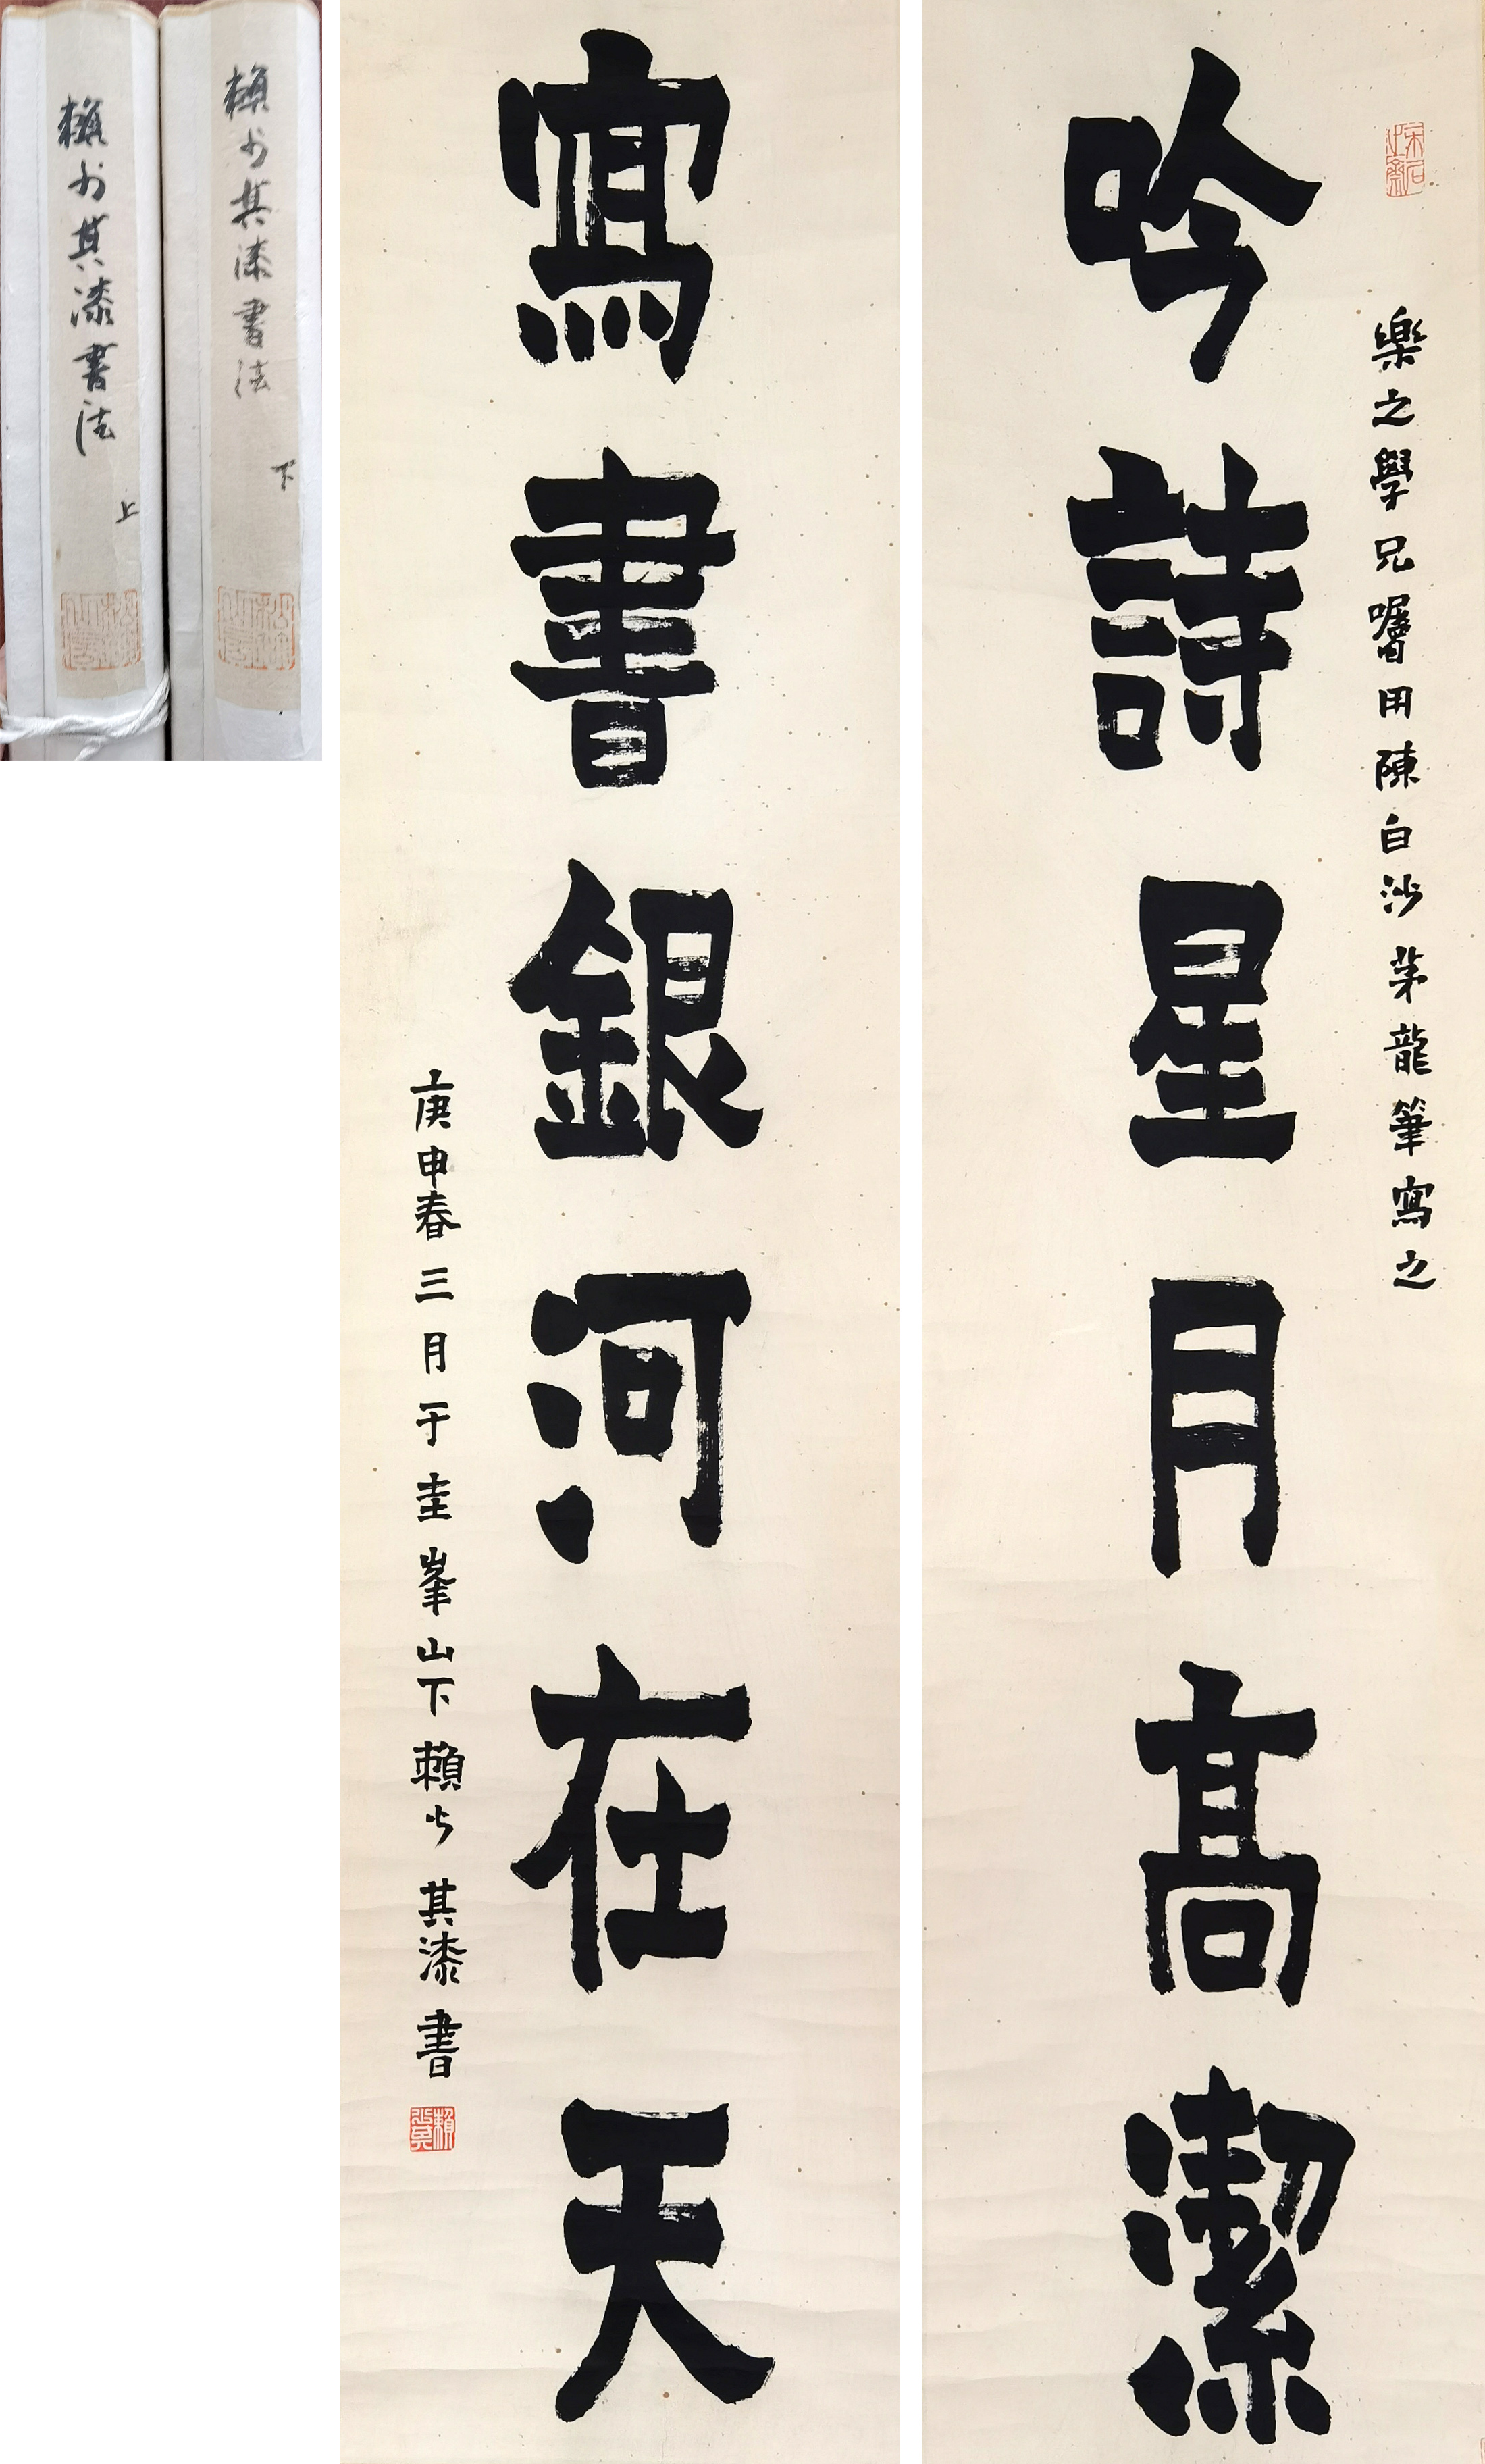 樂之學兄囑用陳白沙茅龍筆寫之
吟詩星月高潔
寫書銀河在天
庚申春三月于圭峯山下賴少其漆書
賴少其漆書法
下
賴少其漆書法
上